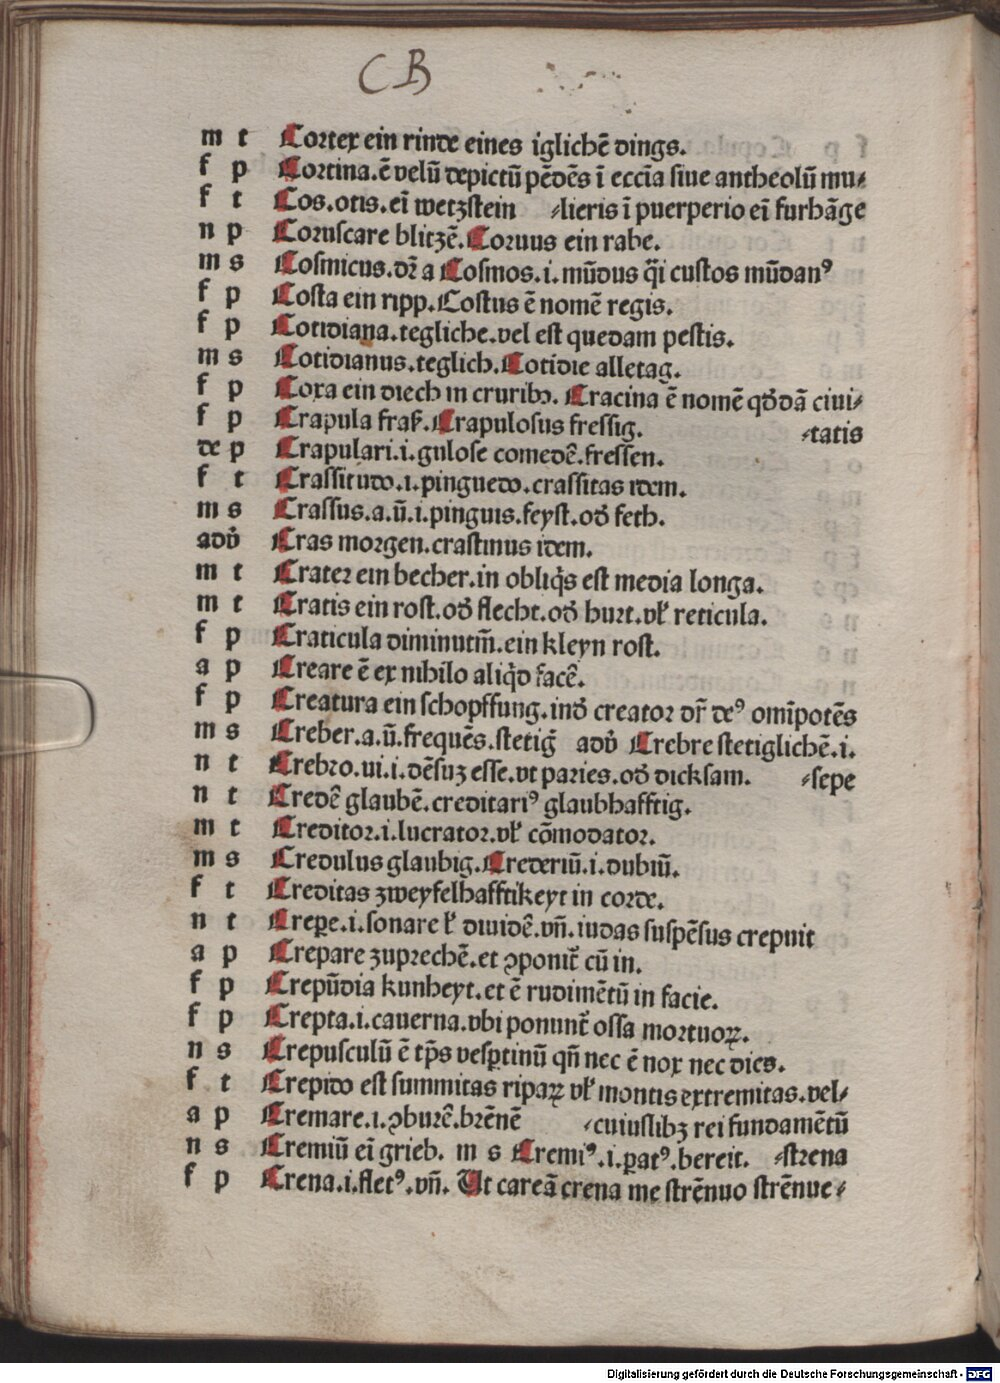 CB
m t Cortex ein rinde eines iglichē dings.
f p Cortina.ē velū depictū pēdēs ī eccīa siue antheolū mu⸗
f t Cos.otis.eī wetzstein ⸗lieris ī puerperio eī furhāge
n p Coruscare blitzē.Coruus ein rabe.
m s Cosmicus.dr̄ a Cosmos.i.mūdus q̄i custos mūdanꝰ
f p Costa ein ripp.Costus ē nomē regis.
f p Cotidiana.tegliche.vel est quedam pestis.
m s Cotidianus.teglich.Cotidie alletag.
f p Coxa ein diech in cruribꝫ. Cracina ē nomē qd̓dā ciui⸗
f p Crapula fraß.Crapulosus fressig. ⸗tatis
de p Crapulari.i.gulose comedē.fressen.
f t Crassitudo.i.pinguedo.crassitas idem.
m s Crassus.a.ū.i.pinguis.feyst.od̓ feth.
adv̓ Cras morgen.crastinus idem.
m t Crater ein becher.in obliq̄s est media longa.
m t Cratis ein rost.od̓ flecht.od̓ hurt.vł reticula.
f p Craticula diminutiū.ein kleyn rost.
a p Creare ē ex nihilo aliq̄d facē.
f p Creatura ein schopffung.ind̓ creator dr̄ deꝰ omīpotēs
m s Creber.a.ū.frequēs.stetiḡ adv̓ Crebre stetiglichē.i.
n t Crebro.ui.i.dēsuz esse.vt paries.od̓ dicksam. ⸗sepe
n t Credē glaubē.creditariꝰ glaubhafftig.
m t Creditor.i.lucrator.vł cōmodator.
m s Credulus glaubig.Crederiū.i.dubiū.
f t Creditas zweyfelhafftikeyt in corde.
n t Creꝑe.i.sonare ł diuidē.vn̄.iudas suspēsus crepuit
a p Crepare zuprechē.et ꝯponit̄ cū in.
f p Crepūdia kunheyt.et ē rudimētū in facie.
f p Crepta.i.cauerna.vbi ponunt̄ ossa mortuoꝝ.
n s Crepusculū ē tp̄s vesꝑtinū qn̄ nec ē nox nec dies.
f t Crepido est summitas ripaꝝ vł montis extremitas.vel⸗
a p Cremare.i.ꝯburē.brēnē ⸗cuiuslibꝫ rei fundamētū
n s Cremiū eī grieb. m s Cremiꝰ.i.ꝑatꝰ.bereit. ⸗strena
f p Crena.i.fletꝰ.vn̄. Ut careā crena me strēnuo strēnue⸗
Digitalisierung gefördert durch die Deutsche Forschungsgemeinschaft - DFG